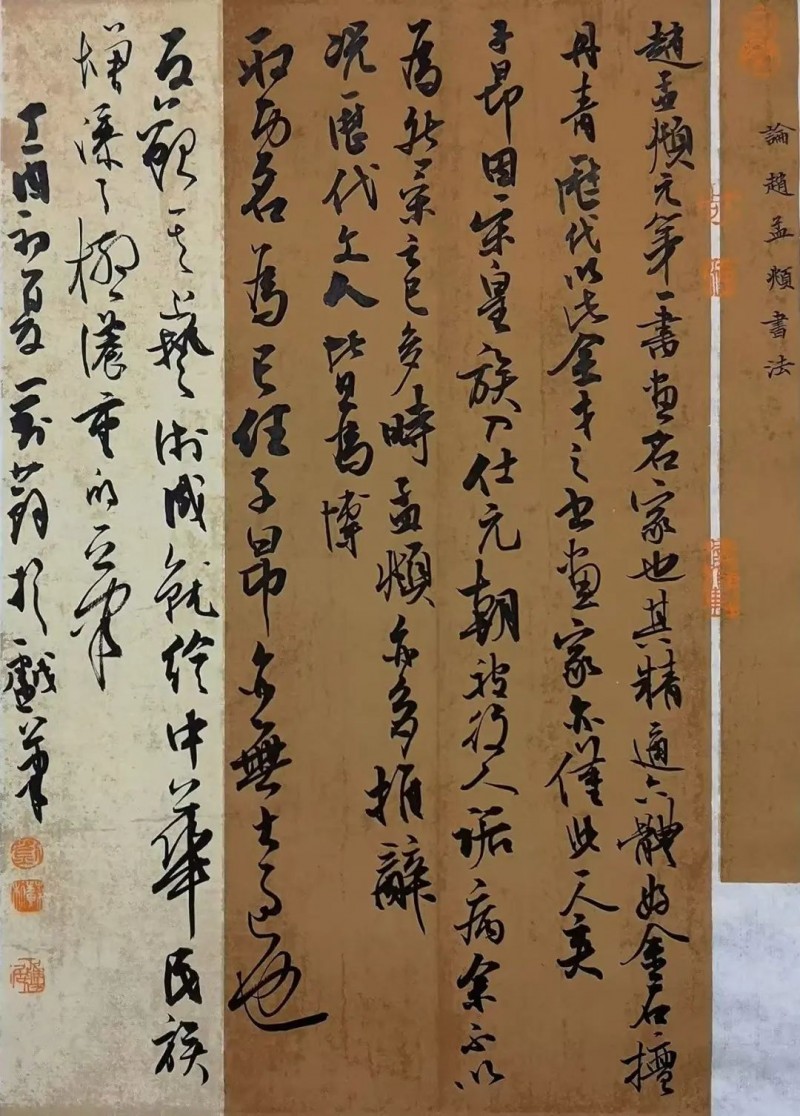 論趙孟頫書法
趙孟頫元第一書畫名家也其精通六體好金石擅
丹青歷代以此全才之書畫家亦僅此一人矣
子昂因宋皇族入仕元朝被後人詬病余不以
為然宋亡已多時孟頫亦多推辭
況歷代文人皆為博
取功名為己任子昂亦無大過也
反觀其藝術成就給中華民族
增添了極濃重的一筆
丁酉初夏於戲筆